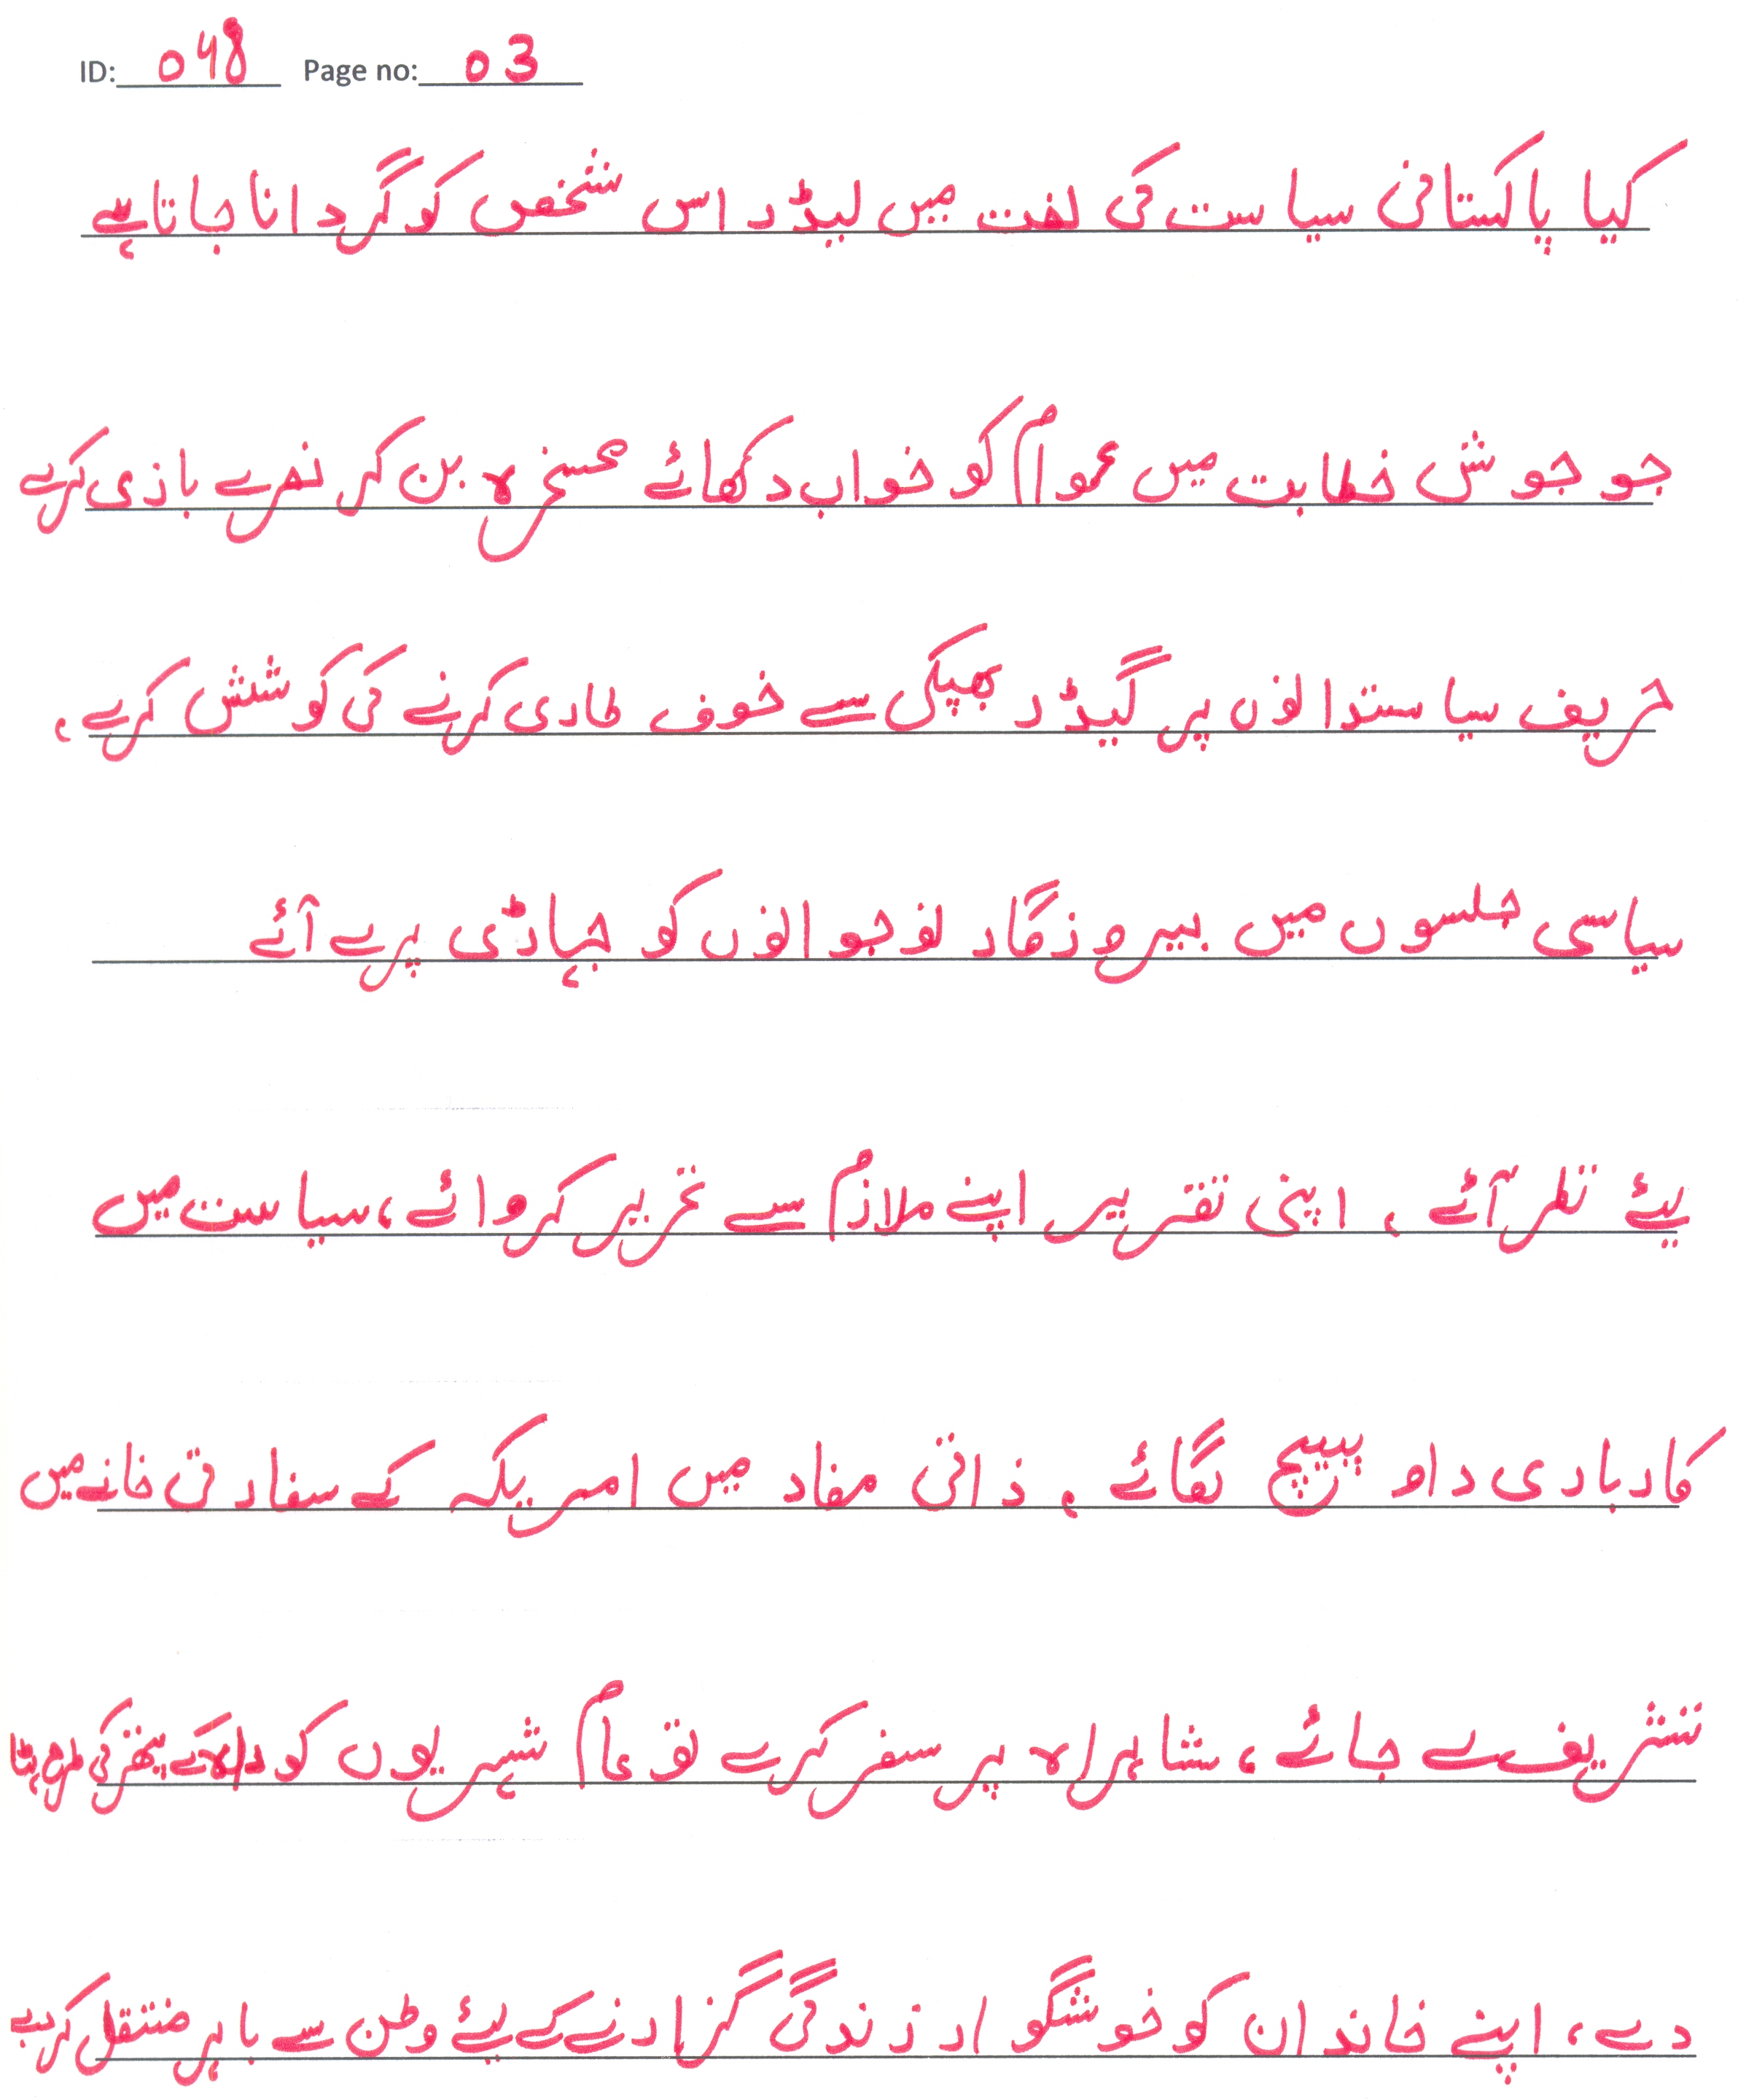 ID: 048 Page no: 03
کیا پاکستانی سیاست کی لغت میں لیڈر اس شخص کو گردانا جاتا ہے
جو جوش خطابت میں عوام کو خواب دکھائے مسخرہ بن کر نعرے بازی کرے
حریف سیاستدانوں پر گیڈر بھپکی سے خوف طاری کرنے کی کوشش کرے،
سیاسی جلسوں میں بیروزگار نوجوانوں کو دہاڑی پر لے آئے
لیئے نظر آئے، اپنی تقریر اپنے ملازم سے تحریر کروائے، سیاست میں
کاروباری داو پیچ لگائے، ذاتی مفاد میں امریکہ کے سفارتی خانے میں
تشریف لے جائے، شاہراہ پر سفر کرے تو عام شہریوں کو کے پتھر کی طرح ہٹا
دے، اپنے خاندان کو خوشگوار زندگی گزارنے کے لیئے وطن سے باہر منتقل کر دے